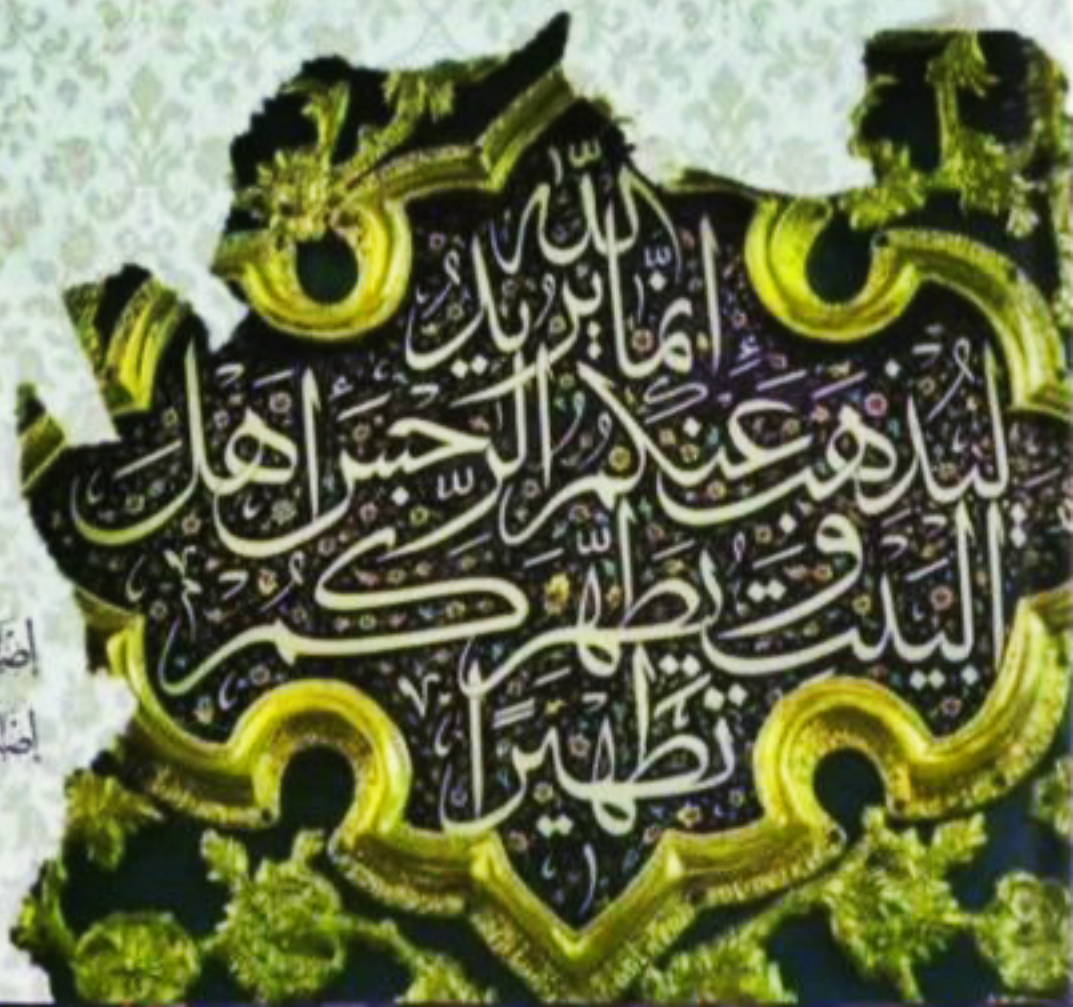 إنّما يُريدُ الله
لِيُذهِبَ عَنكُمُ الرِّجسَ أهلَ
البَيتِ وَيُطَهِّرَكُم
تَطهيرًا